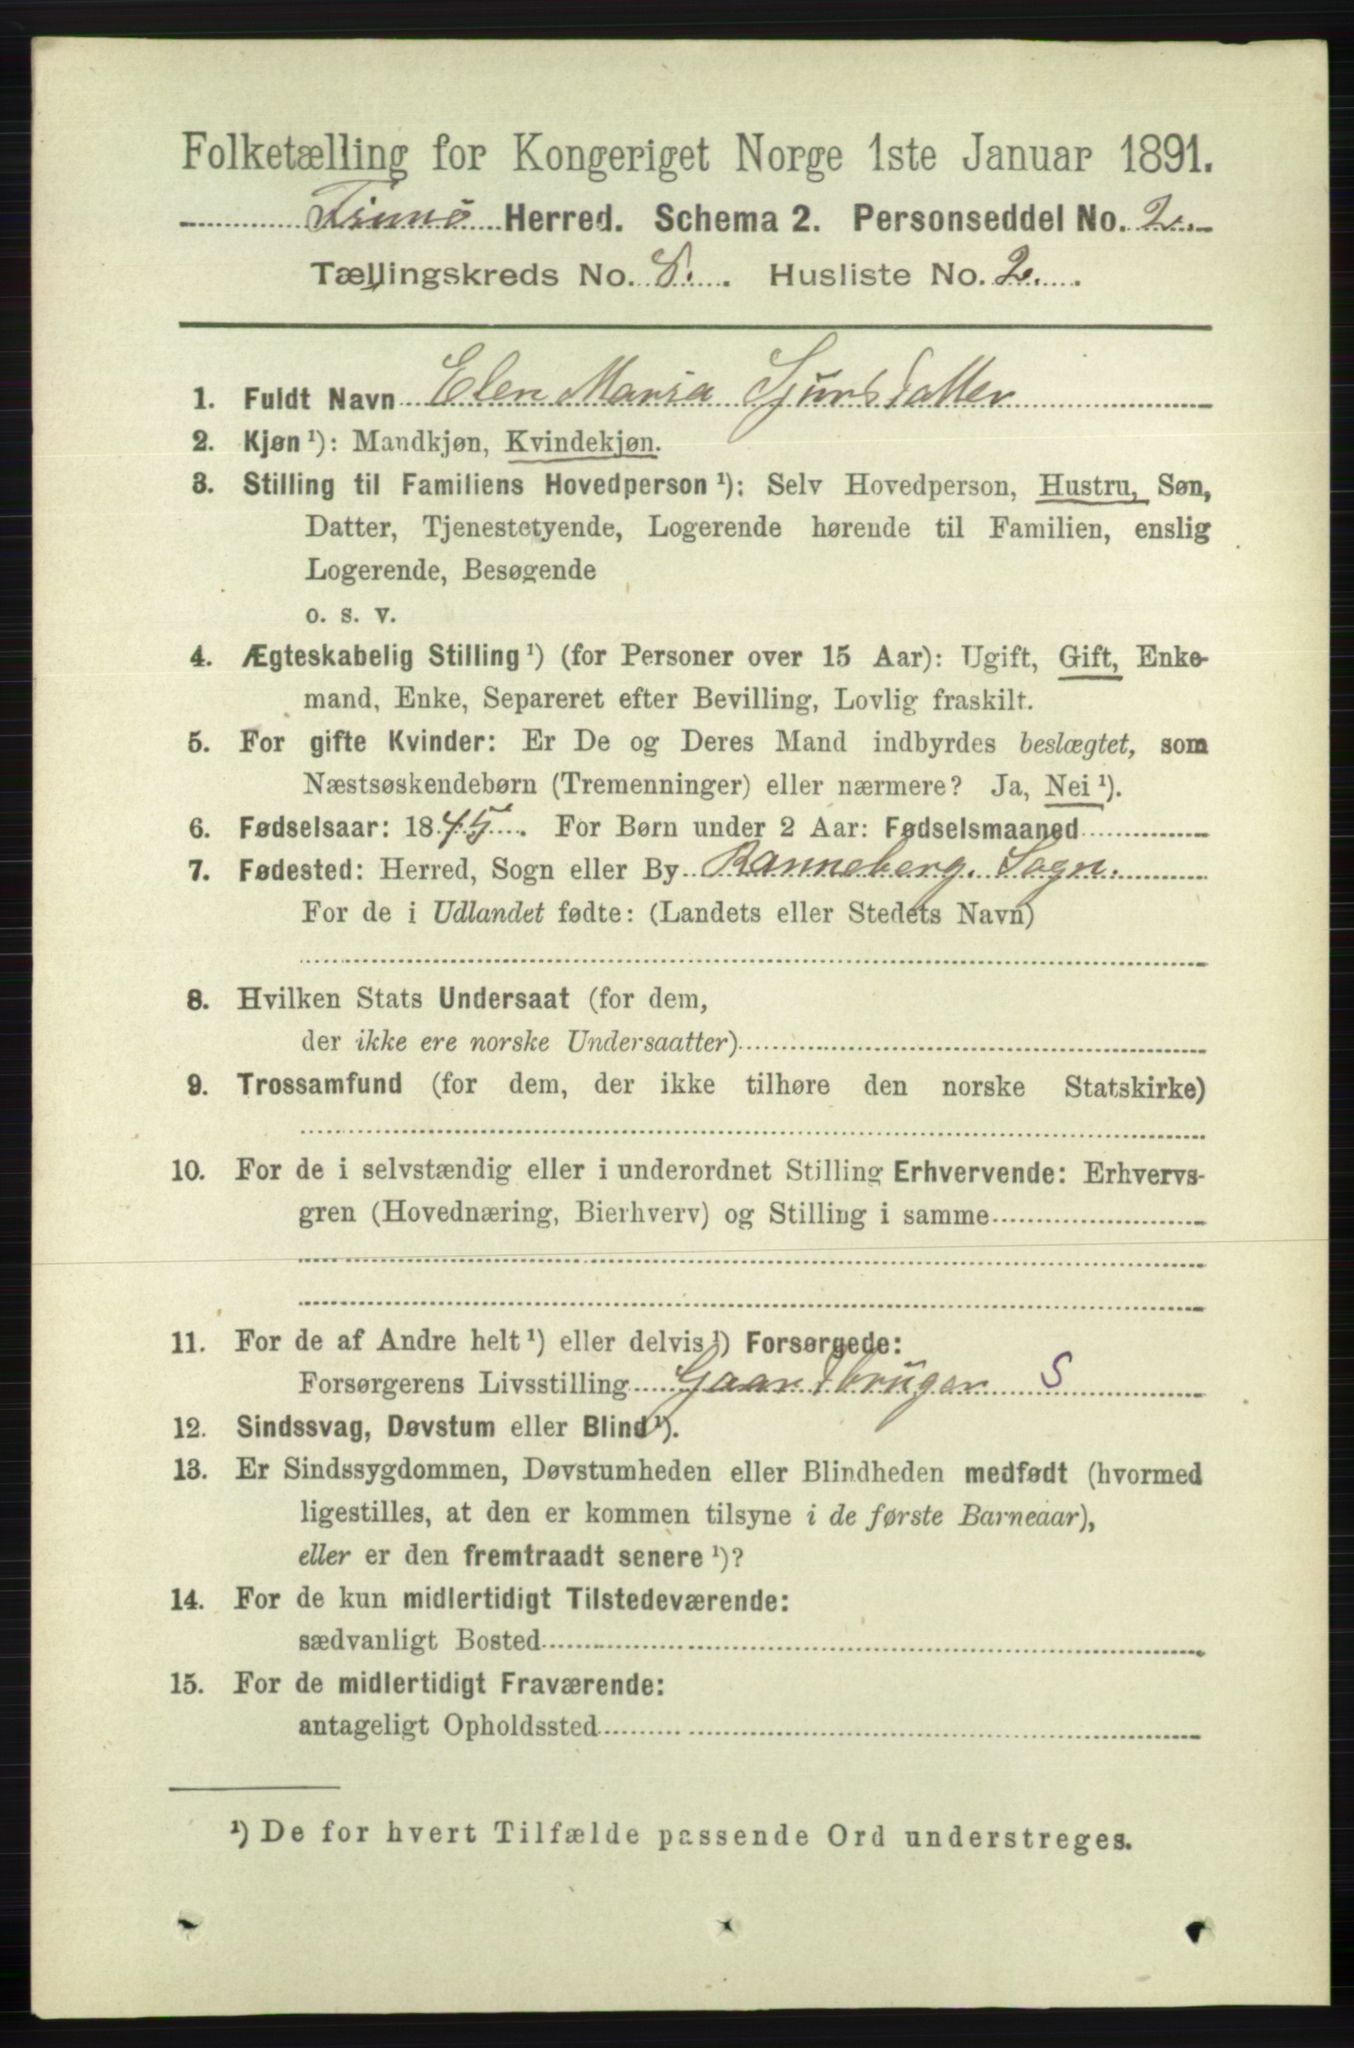 Folketælling for Kongeriget Norge 1ste Januar 1891.
Finnø Herred. Schema 2. Personseddel No. 2.
Tællingskreds No. 8. Husliste No. 2.
1. Fuldt Navn Elen Maria Sjursdatter
2. Kjøn ¹): Mandkjøn, Kvindekjøn.
3. Stilling til Familiens Hovedperson ¹): Selv Hovedperson, Hustru, Søn,
Datter, Tjenestetyende, Logerende hørende til Familien, enslig
Logerende, Besøgende
o. s. v.
4. Ægteskabelig Stilling ¹) (for Personer over 15 Aar): Ugift, Gift, Enke-
mand, Enke, Separeret efter Bevilling, Lovlig fraskilt.
5. For gifte Kvinder: Er De og Deres Mand indbyrdes beslægtet, som
Næstsøskendebørn (Tremenninger) eller nærmere? Ja, Nei ¹).
6. Fødselsaar: 1845. For Børn under 2 Aar: Fødselsmaaned
7. Fødested: Herred, Sogn eller By Ranneberg. Sogn.
For de i Udlandet fødte: (Landets eller Stedets Navn)
8. Hvilken Stats Undersaat (for dem,
der ikke ere norske Undersaatter)
9. Trossamfund (for dem, der ikke tilhøre den norske Statskirke)
10. For de i selvstændig eller i underordnet Stilling Erhvervende: Erhvervs-
gren (Hovednæring, Bierhverv) og Stilling i samme
11. For de af Andre helt ¹) eller delvis ¹) Forsørgede:
Forsørgerens Livsstilling Gaardbruger S
12. Sindssvag, Døvstum eller Blind ¹).
13. Er Sindssygdommen, Døvstumheden eller Blindheden medfødt (hvormed
ligestilles, at den er kommen tilsyne i de første Barneaar),
eller er den fremtraadt senere ¹)?
14. For de kun midlertidigt Tilstedeværende:
sædvanligt Bosted
15. For de midlertidigt Fraværende:
antageligt Opholdssted
¹) De for hvert Tilfælde passende Ord understreges.